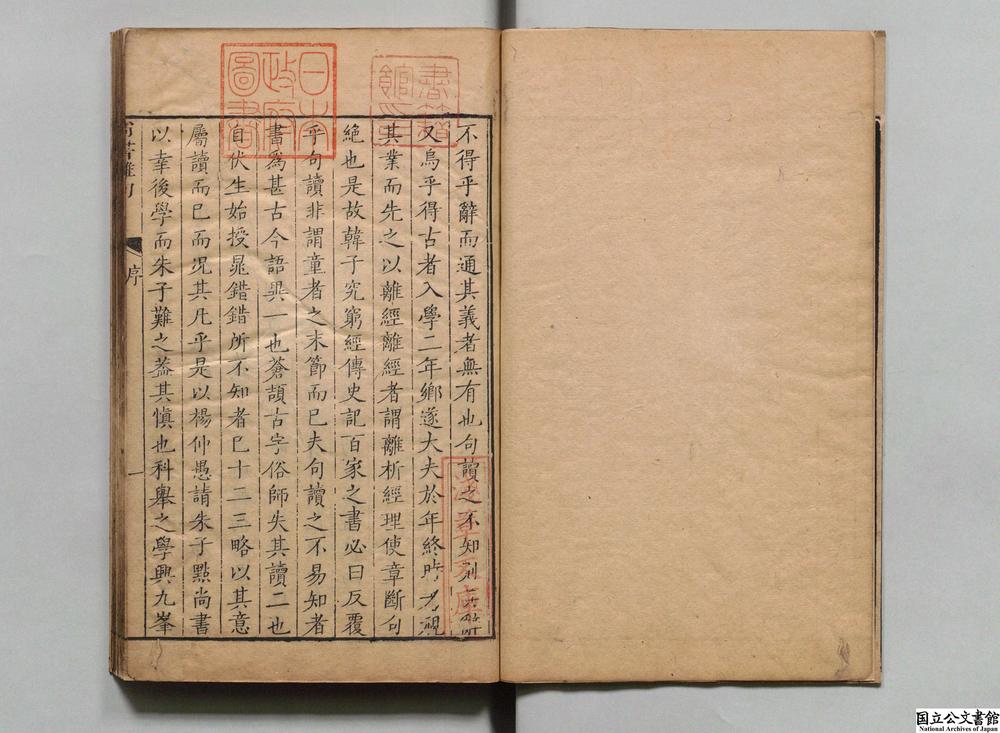 不得乎辭而通其義者無有也句讀之不知別
又烏乎得古者入學二年鄉遂大夫於年終時考視
其業而先之以離經離經者謂離析經理使章斷句
絶也是故韓子究窮經傳史記百家之書必曰反覆
乎句讀非謂童者之末節而已夫句讀之不易知者
書爲甚古今語異一也蒼頡古字俗師失其讀二也
自伏生始授鼂錯錯所不知者已十二三略以其意
屬讀而已而况其凡乎是以楊仲愚請朱子點尚書
以幸後學而朱子難之葢其愼也科舉之學興九峯
序
一
日本
政府
圖書
書籍
館印
淺草文庫
国立公文書館
National Archives of Japan